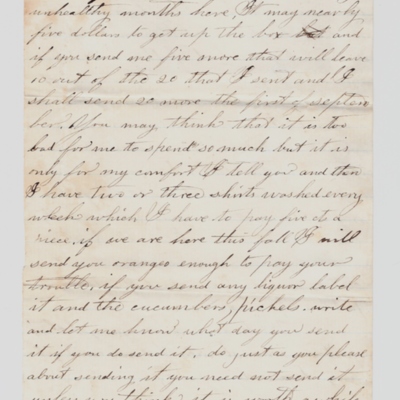 unhealthy months here, It may nearly
five dollars to get up the box but and
if you send me five more that will leave
10 out of the 20 that I sent and I
shall send 20 more the first of septem
ber. You may, think that it is too
bad for me to spend so much but it is
only for my comfort I tell you and then
I have two or three shirts washed every
week which I have to pay five cts a
piece, if we are here this fall I will
send you oranges enough to pay your
trouble, if you send any liquor label
it and the cucumbers, pickels. write
and let me know what day you send
it if you do send it. do just as you please
about sending it you need not send it
unless you think it is worth